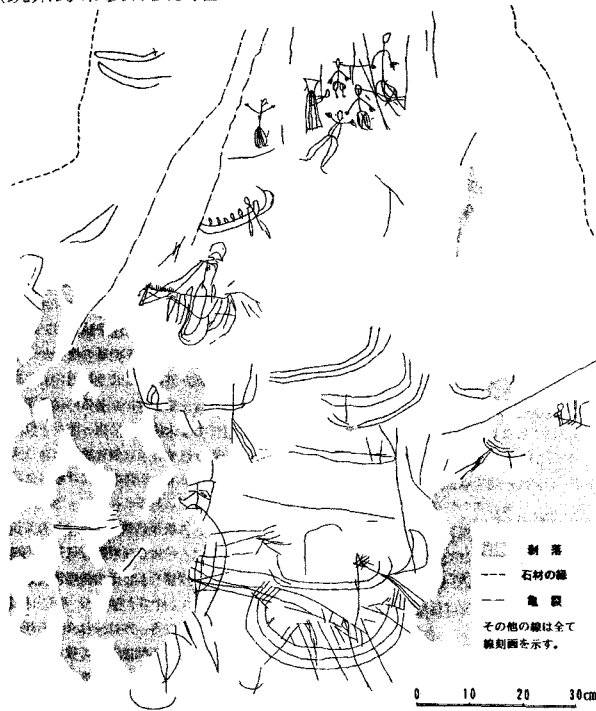 剥 落
石材の縁
亀 裂
その他の線は全て
線刻画を示す。
0 10 20 30cm